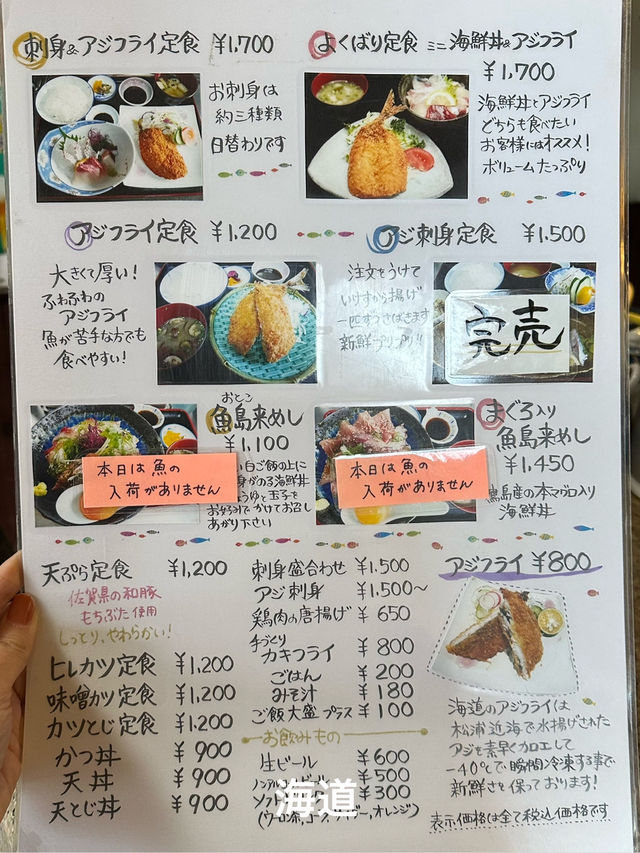 刺身&アジフライ定食 ¥1,700
お刺身は
約三種類
日替わりです
よくばり定食 ミニ海鮮丼&アジフライ
¥1,700
海鮮丼とアジフライ
どちらも食べたい
お客様にはオススメ!
ボリュームたっぷり
アジフライ定食 ¥1,200
大きくて厚い!
ふわふわの
アジフライ
魚が苦手な方でも
食べやすい!
アジ刺身定食 ¥1,500
注文をうけて
いけすから揚げ
一匹ずつさばきます
新鮮プリプリ!!
完売
おとこ
魚島来めし
¥1,100
白ご飯の上に
身がのる海鮮丼
ゆと玉子を
お好みでかけてお召し
あがり下さい
本日は魚の
入荷がありません
まぐろ入り
魚島来めし
¥1,450
島産の本マグロ入り
海鮮丼
本日は魚の
入荷がありません
天ぷら定食 ¥1,200
佐賀県の和豚
もちぶた使用
しっとり、やわらかい!
ヒレカツ定食 ¥1,200
味噌カツ定食 ¥1,200
カツとじ定食 ¥1,200
かつ丼 ¥900
天丼 ¥900
天とじ丼 ¥900
刺身盛合わせ ¥1,500
アジ刺身 ¥1,500~
鶏肉の唐揚げ ¥650
手づくり
カキフライ ¥800
ごはん ¥200
みそ汁 ¥180
ご飯大盛プラス ¥100
お飲みもの
生ビール ¥600
ノンアルコールビール ¥500
ソフト ¥300
オレンジ)
アジフライ ¥800
海道のアジフライは
松浦近海で水揚げされた
アジを素早く加工して
-40℃で瞬間冷凍する事で
新鮮さを保っております!
表示価格は全て税込価格です
海道